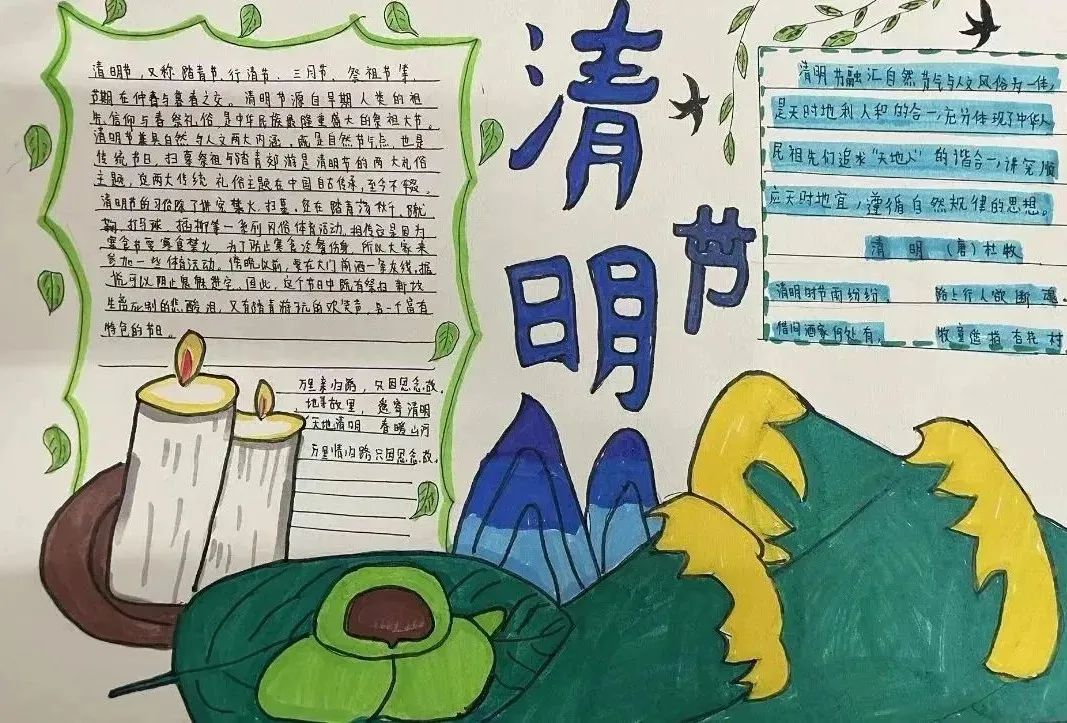 清明节
清明节，又称踏青节、行清节、三月节、祭祖节等，
节期在仲春与暮春之交。清明节源自早期人类的祖
先信仰与春祭礼俗，是中华民族最隆重盛大的祭祖大节。
清明节兼具自然与人文两大内涵，既是自然节气点，也是
传统节日，扫墓祭祖与踏青郊游是清明节的两大礼俗
主题，这两大传统礼俗主题在中国自古传承，至今不辍。
清明节的习俗除了讲究禁火、扫墓，还有踏青荡秋千、蹴
鞠、打马球、插柳等一系列风俗体育活动。相传这是因为
寒食节要寒食禁火，为了防止寒食冷餐伤身，所以大家来
参加一些体育活动。
可以阻止鬼魅进宅，但此，这个节日中既有祭扫新坟
生离死别的悲酸泪，又有踏青游玩的欢笑声，是一个富有
特色的节日。
万里亲归路，只因思念故。
地零故里，遥寄清明
天地清明 春暖山河
万里情归路只因思念故。
清明节融汇自然节气与人文风俗为一体，
是天时地利人和的合一，充分体现了中华人
民祖先们追求“天地人”的谐合一，讲究顺
应天时地宜，遵循自然规律的思想。
清明 （唐）杜牧
清明时节雨纷纷， 路上行人欲断魂。
借问酒家何处有， 牧童遥指杏花村